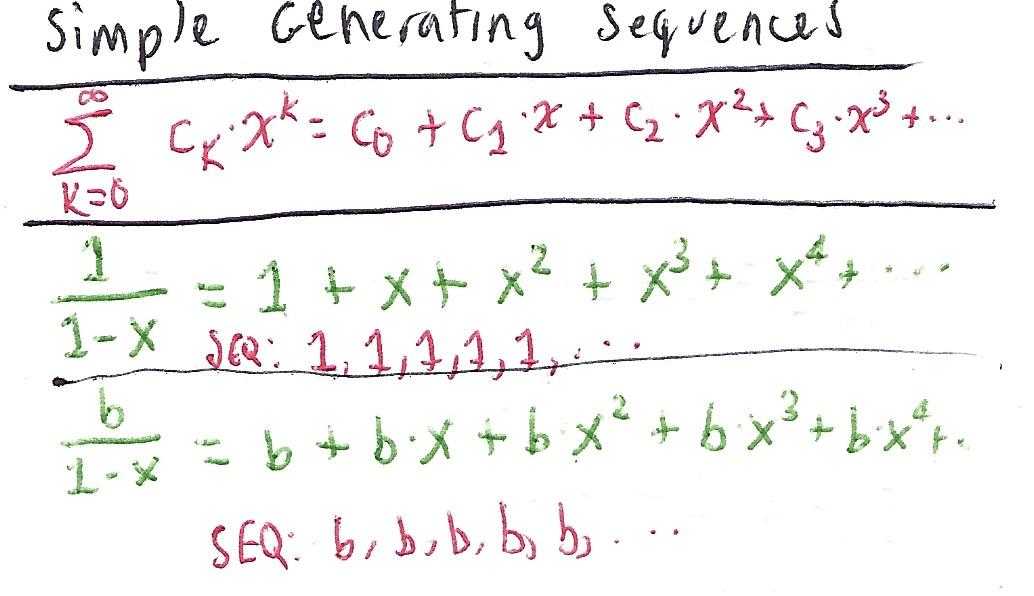 Simple Generating Sequences
∞
∑ c_k·x^k = c_0 + c_1·x + c_2·x^2 + c_3·x^3 + ...
k=0
1/(1-x) = 1 + x + x^2 + x^3 + x^4 + ...
SEQ: 1, 1, 1, 1, 1, ...
b/(1-x) = b + b·x + b·x^2 + b·x^3 + b·x^4 + ..
SEQ: b, b, b, b, b, ...